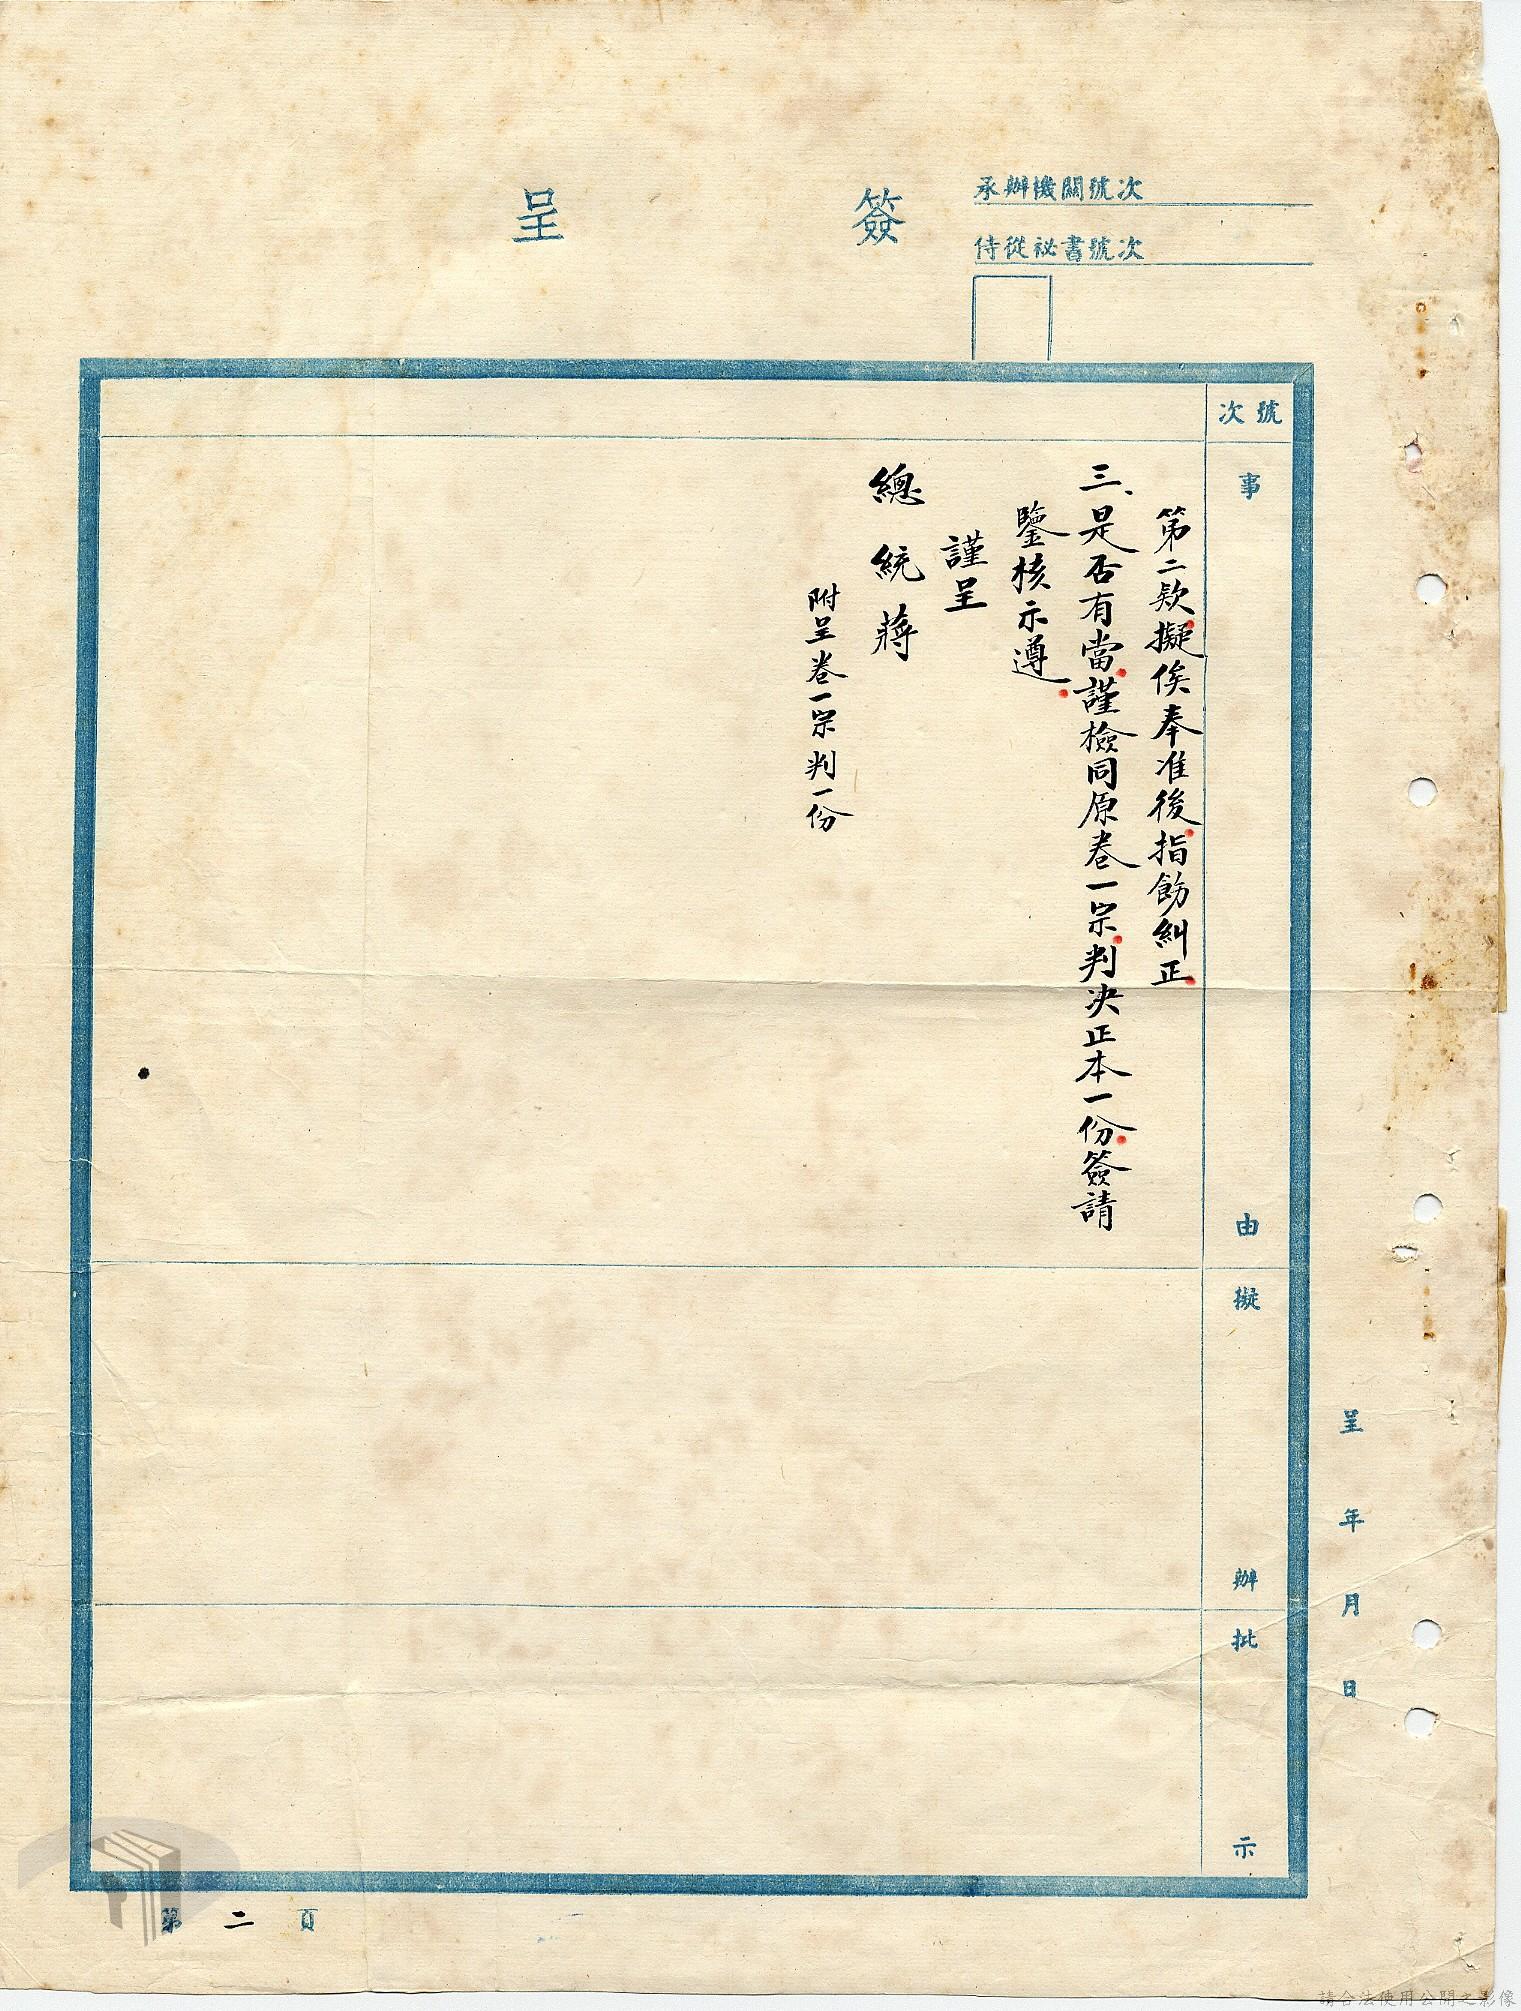 承辦機關號次
侍從祕書號次
簽呈
號次
事由
擬辦
批示
第二款擬俟奉准後指飭糾正
三、是否有當謹檢同原卷一宗判決正本一份簽請
鑒核示遵
謹呈
總統蔣
附呈卷一宗判一份
呈 年 月 日
第二頁
請合法使用公開之影像